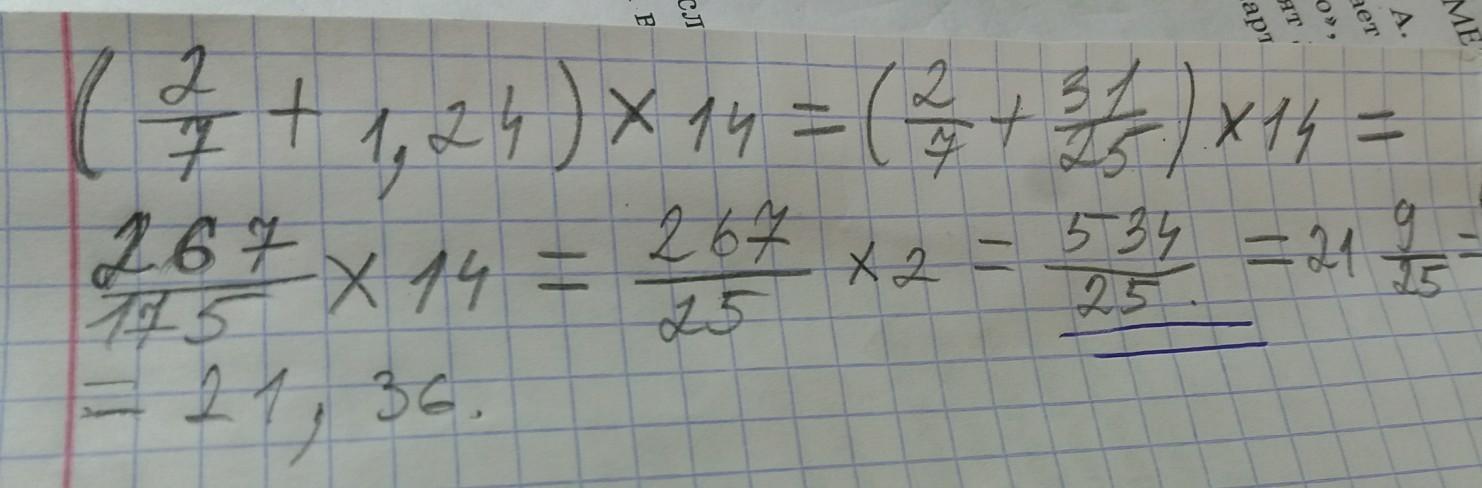 сл
в
МЕ
А.
ает
о»,
ят
арт
(2/7 + 1,24) × 14 = (2/7 + 31/25) × 14 =
267/175 × 14 = 267/25 × 2 = 534/25 = 21 9/25 =
= 21,36.